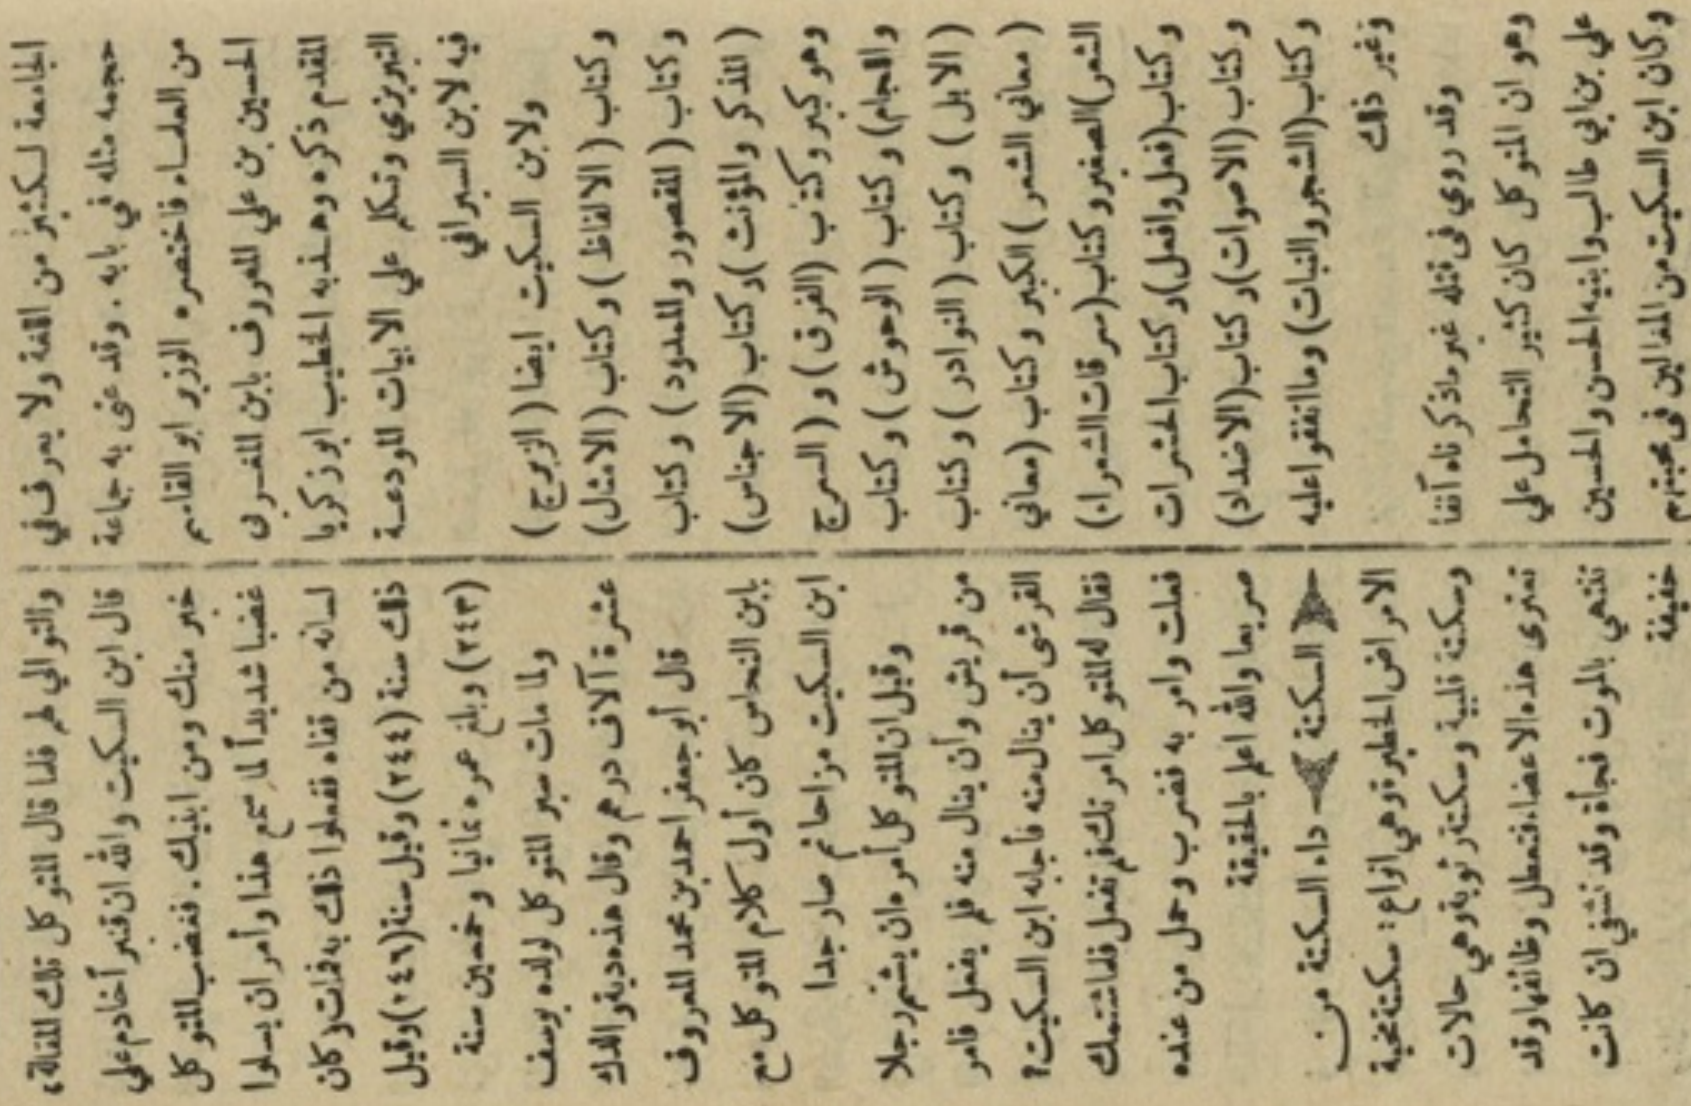 الجامعة لكثير من اللغة ولا يعرف في
حجمه مثله في بابه . وقد عنى به جماعة
من العلماء فاختصره الوزير ابو القاسم
الحسين بن علي المعروف بابن المغربى
المقدم ذكره وهذبه الخطيب ابو زكريا
التبريزي وتكلم علي الابيات المودعة
فيه لابن السيرافي
ولابن السكيت ايضا ( الزبرج )
وكتاب ( الالفاظ ) وكتاب ( الامثال )
وكتاب ( المقصور والممدود ) وكتاب
( المذكر والمؤنث ) وكتاب ( الاجناس )
وهو كبير وكتاب ( الفرق ) و ( السرج
والجام ) وكتاب ( الوحوش ) وكتاب
( الابل ) وكتاب ( النوادر ) وكتاب
( معاني الشعر ) الكبير وكتاب ( معاني
الشعر ) الصغير وكتاب ( سرقات الشعراء )
وكتاب ( فعل وافعل ) وكتاب الحشرات
وكتاب ( الاصوات ) وكتاب ( الاضداد )
وكتاب ( الشجر والنبات ) وما اتفقوا عليه
وغير ذلك
وقد روي فى قتله غير ماذكرناه آنفا
وهو ان المتوكل كان كثير التحامل علي
علي بن ابي طالب وابنيه الحسن والحسين
وكان ابن السكيت من المغالين فى محبتهم
والتوالي لهم فلما قال المتوكل تلك المقالة ،
قال ابن السكيت والله ان قنبر أخادم علي
خير منك ومن ابنيك . فغضب المتوكل
غضبا شديداً لما سمع هذا وأمر ان يسلوا
لسانه من قفاه ففعلوا ذلك به فمات وكان
ذلك سنة ( ٢٤٤ ) وقيل سنة ( ٢٤٦ ) وقيل
( ٢٤٣ ) وبلغ عمره ثمانيا وخمسين سنة
ولما مات سير المتوكل لولده يوسف
عشرة آلاف درهم وقال هذه دية والدك
قال أبو جعفر احمد بن محمد المعروف
بابن النحاس كان أول كلام المتوكل مع
ابن السكيت مزاحا ثم صار جدا
وقيل ان المتوكل أمره ان يشتم رجلا
من قريش وأن ينال منه فلم يفعل فامر
القرشى أن ينال منه فأجابه ابن السكيت ؟
فقال له المتوكل امرتك فلم تفعل فلما شتمك
فعلت وامر به فضرب وحمل من عنده
صريعا والله اعلم بالحقيقة
السكتة - داء السكتة من
الامراض الخطيرة وهي انواع : سكتة مخية
وسكتة قلبية وسكتة رئوية وهي حالات
تعترى هذه الاعضاء فتعطل وظائفها وقد
تنتهي بالموت فجأة وقد تشفي ان كانت
خفيفة